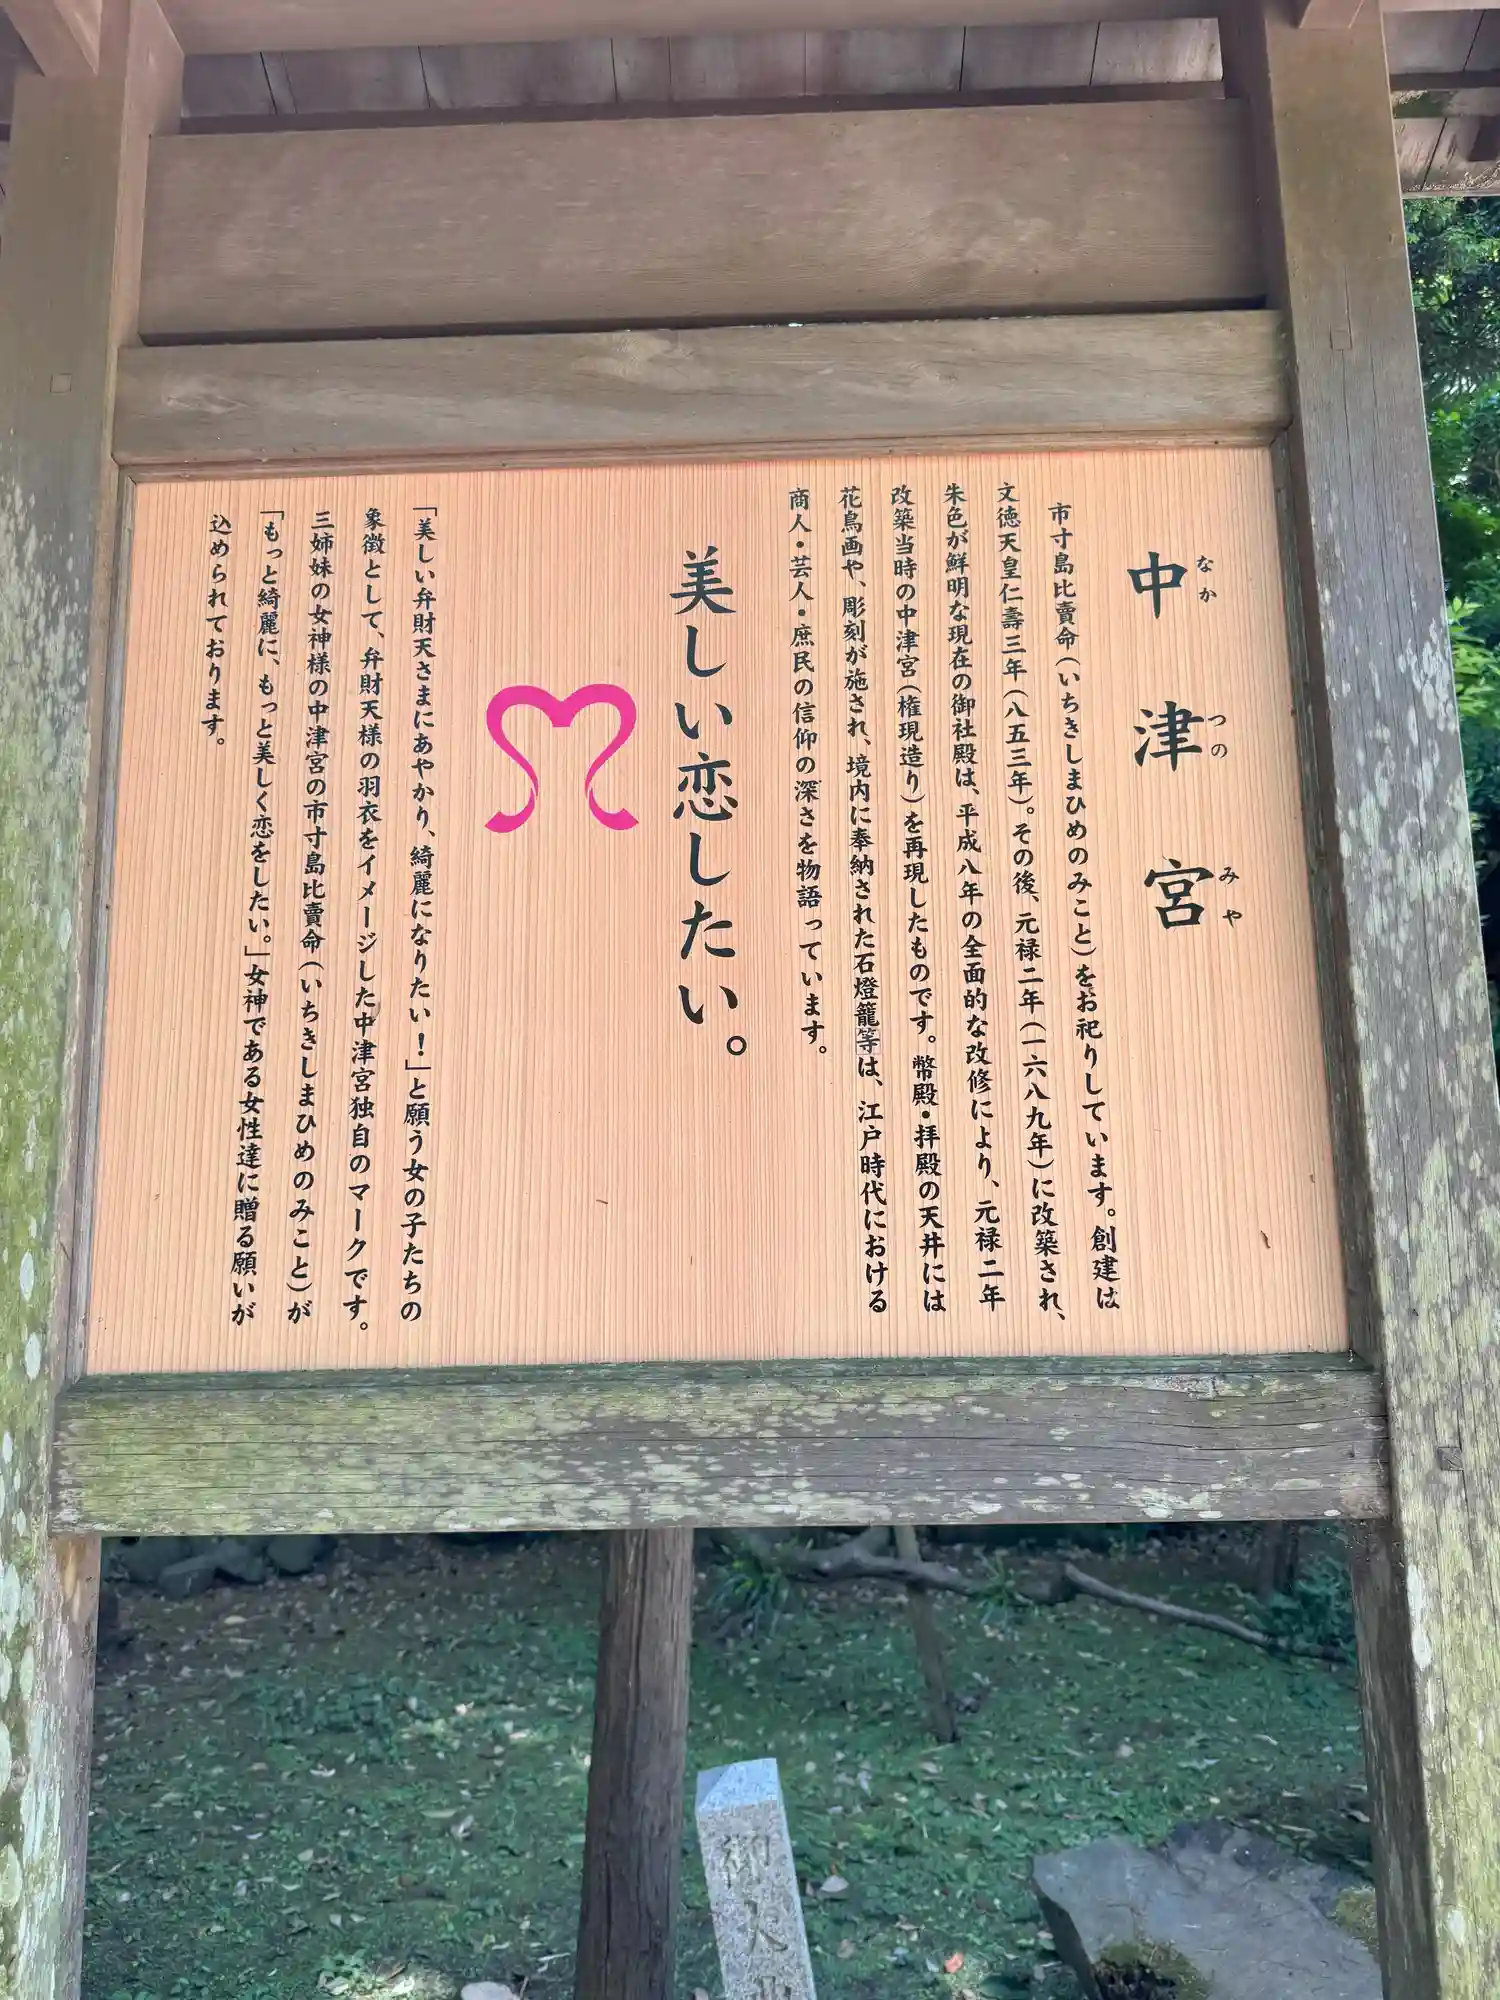 中津宮
なか
つの
みや
市寸島比賣命（いちきしまひめのみこと）をお祀りしています。創建は
文徳天皇仁壽三年（八五三年）。その後、元禄二年（一六八九年）に改築され、
朱色が鮮明な現在の御社殿は、平成八年の全面的な改修により、元禄二年
改築当時の中津宮（権現造り）を再現したものです。幣殿・拝殿の天井には
花鳥画や、彫刻が施され、境内に奉納された石燈籠等は、江戸時代における
商人・芸人・庶民の信仰の深さを物語っています。
美しい恋したい。
「美しい弁財天さまにあやかり、綺麗になりたい！」と願う女の子たちの
象徴として、弁財天様の羽衣をイメージした中津宮独自のマークです。
三姉妹の女神様の中津宮の市寸島比賣命（いちきしまひめのみこと）が
「もっと綺麗に、もっと美しく恋をしたい。」女神である女性達に贈る願いが
込められております。
御大